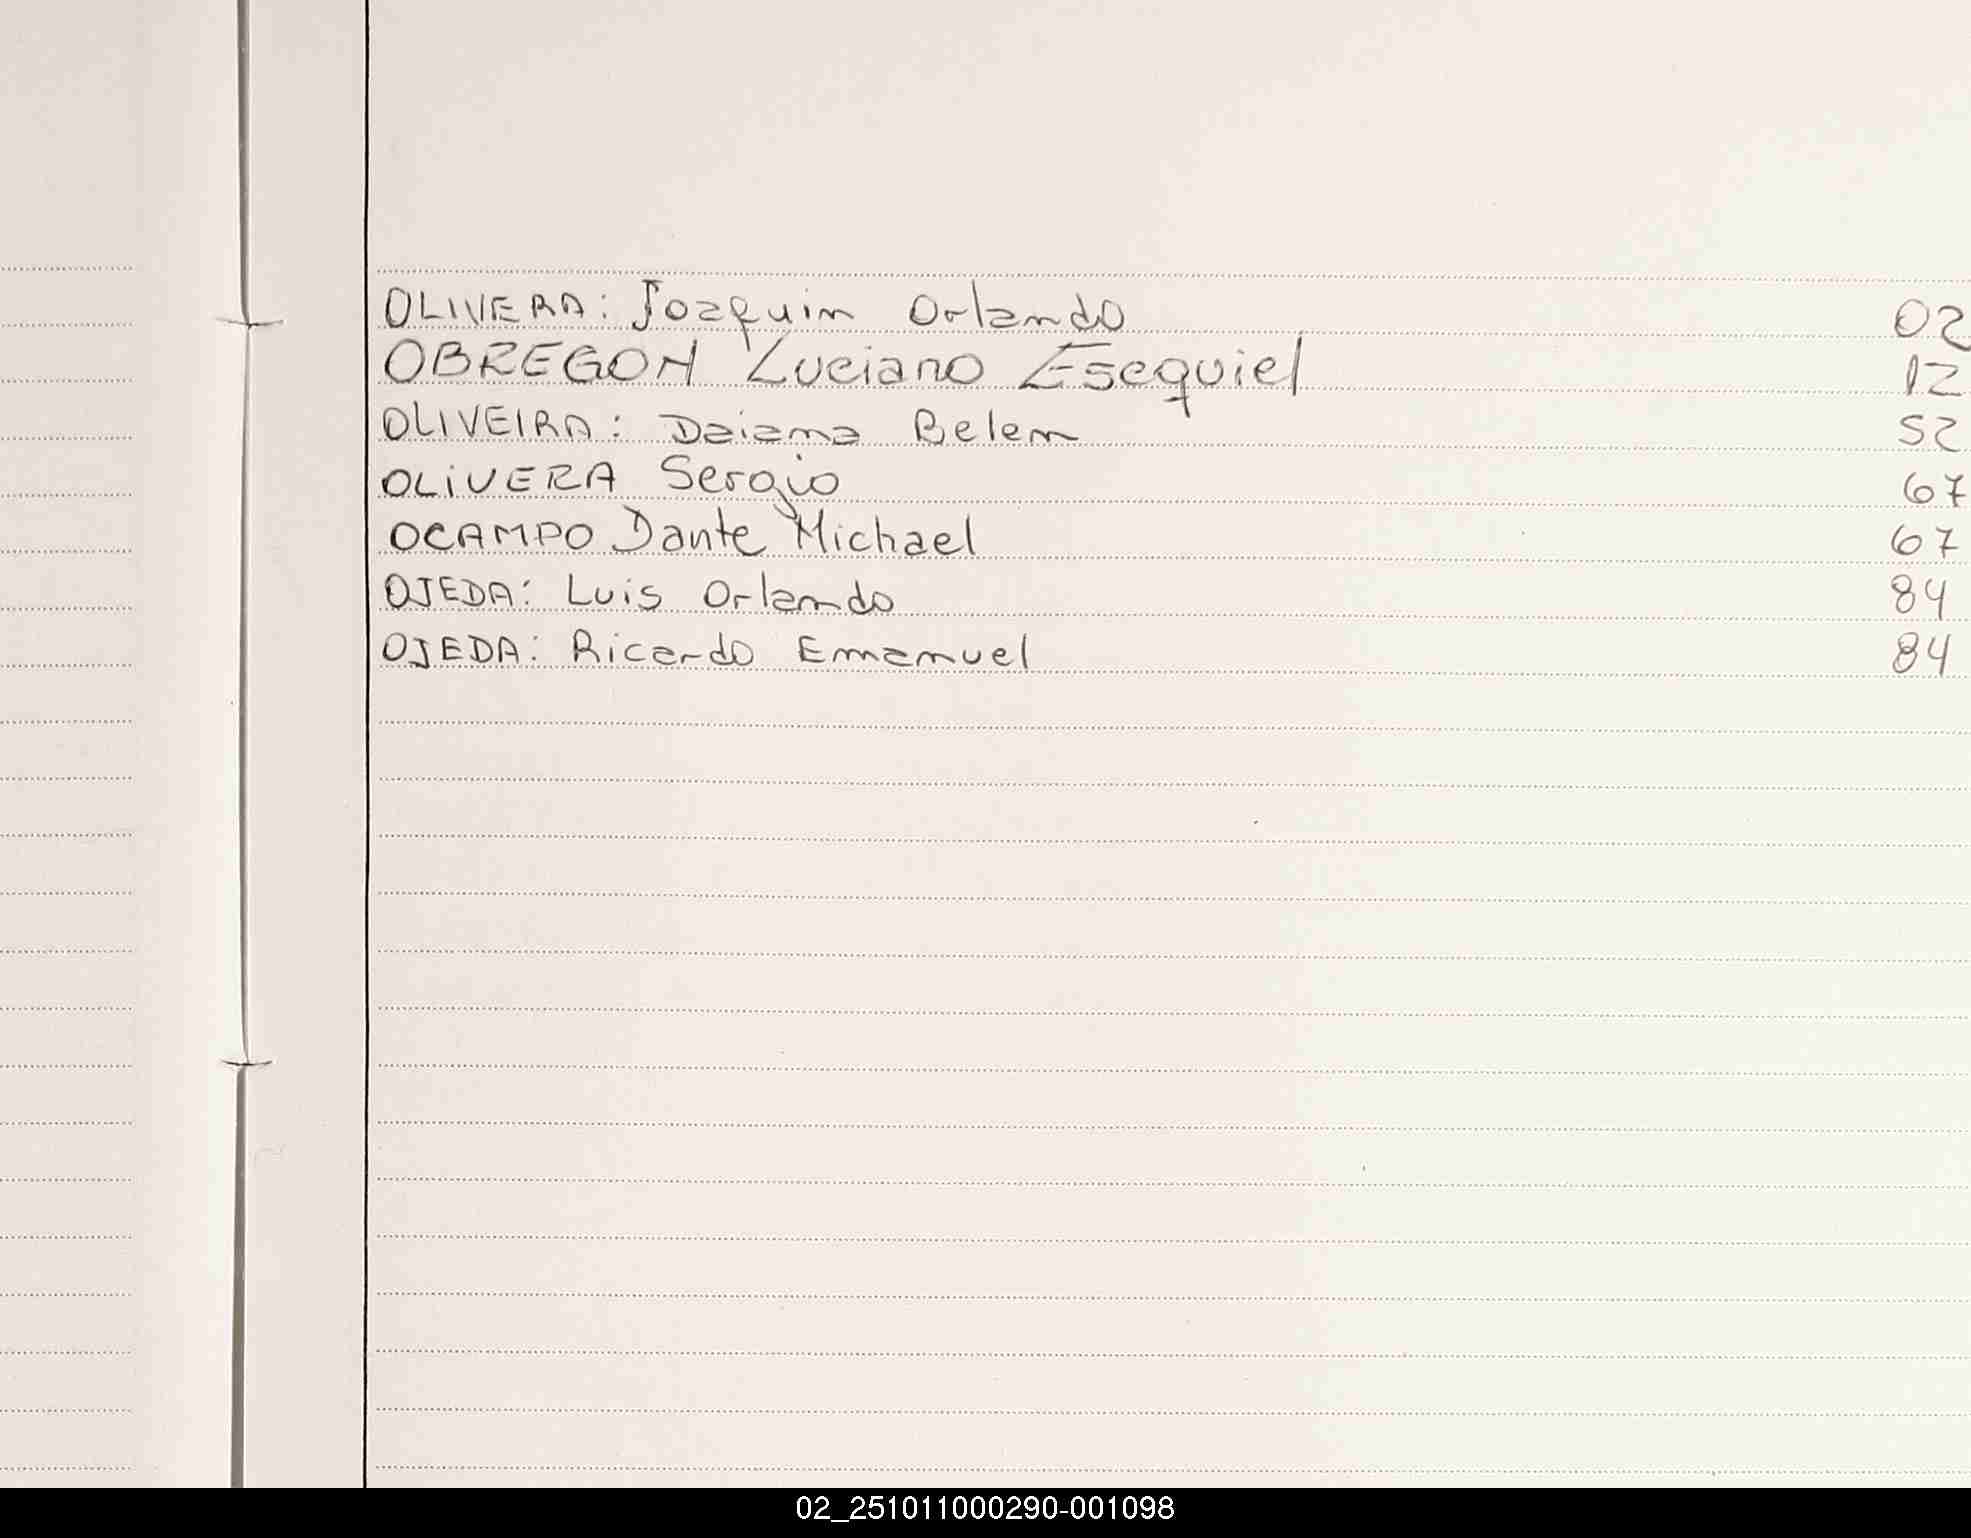 OLIVERA: Joaquin Orlando 02
OBREGON Luciano Esequiel 12
OLIVEIRA: Daiana Belen 52
OLIVERA Sergio 67
OCAMPO Dante Michael 67
OJEDA: Luis Orlando 84
OJEDA: Ricardo Emanuel 84
02_251011000290-001098